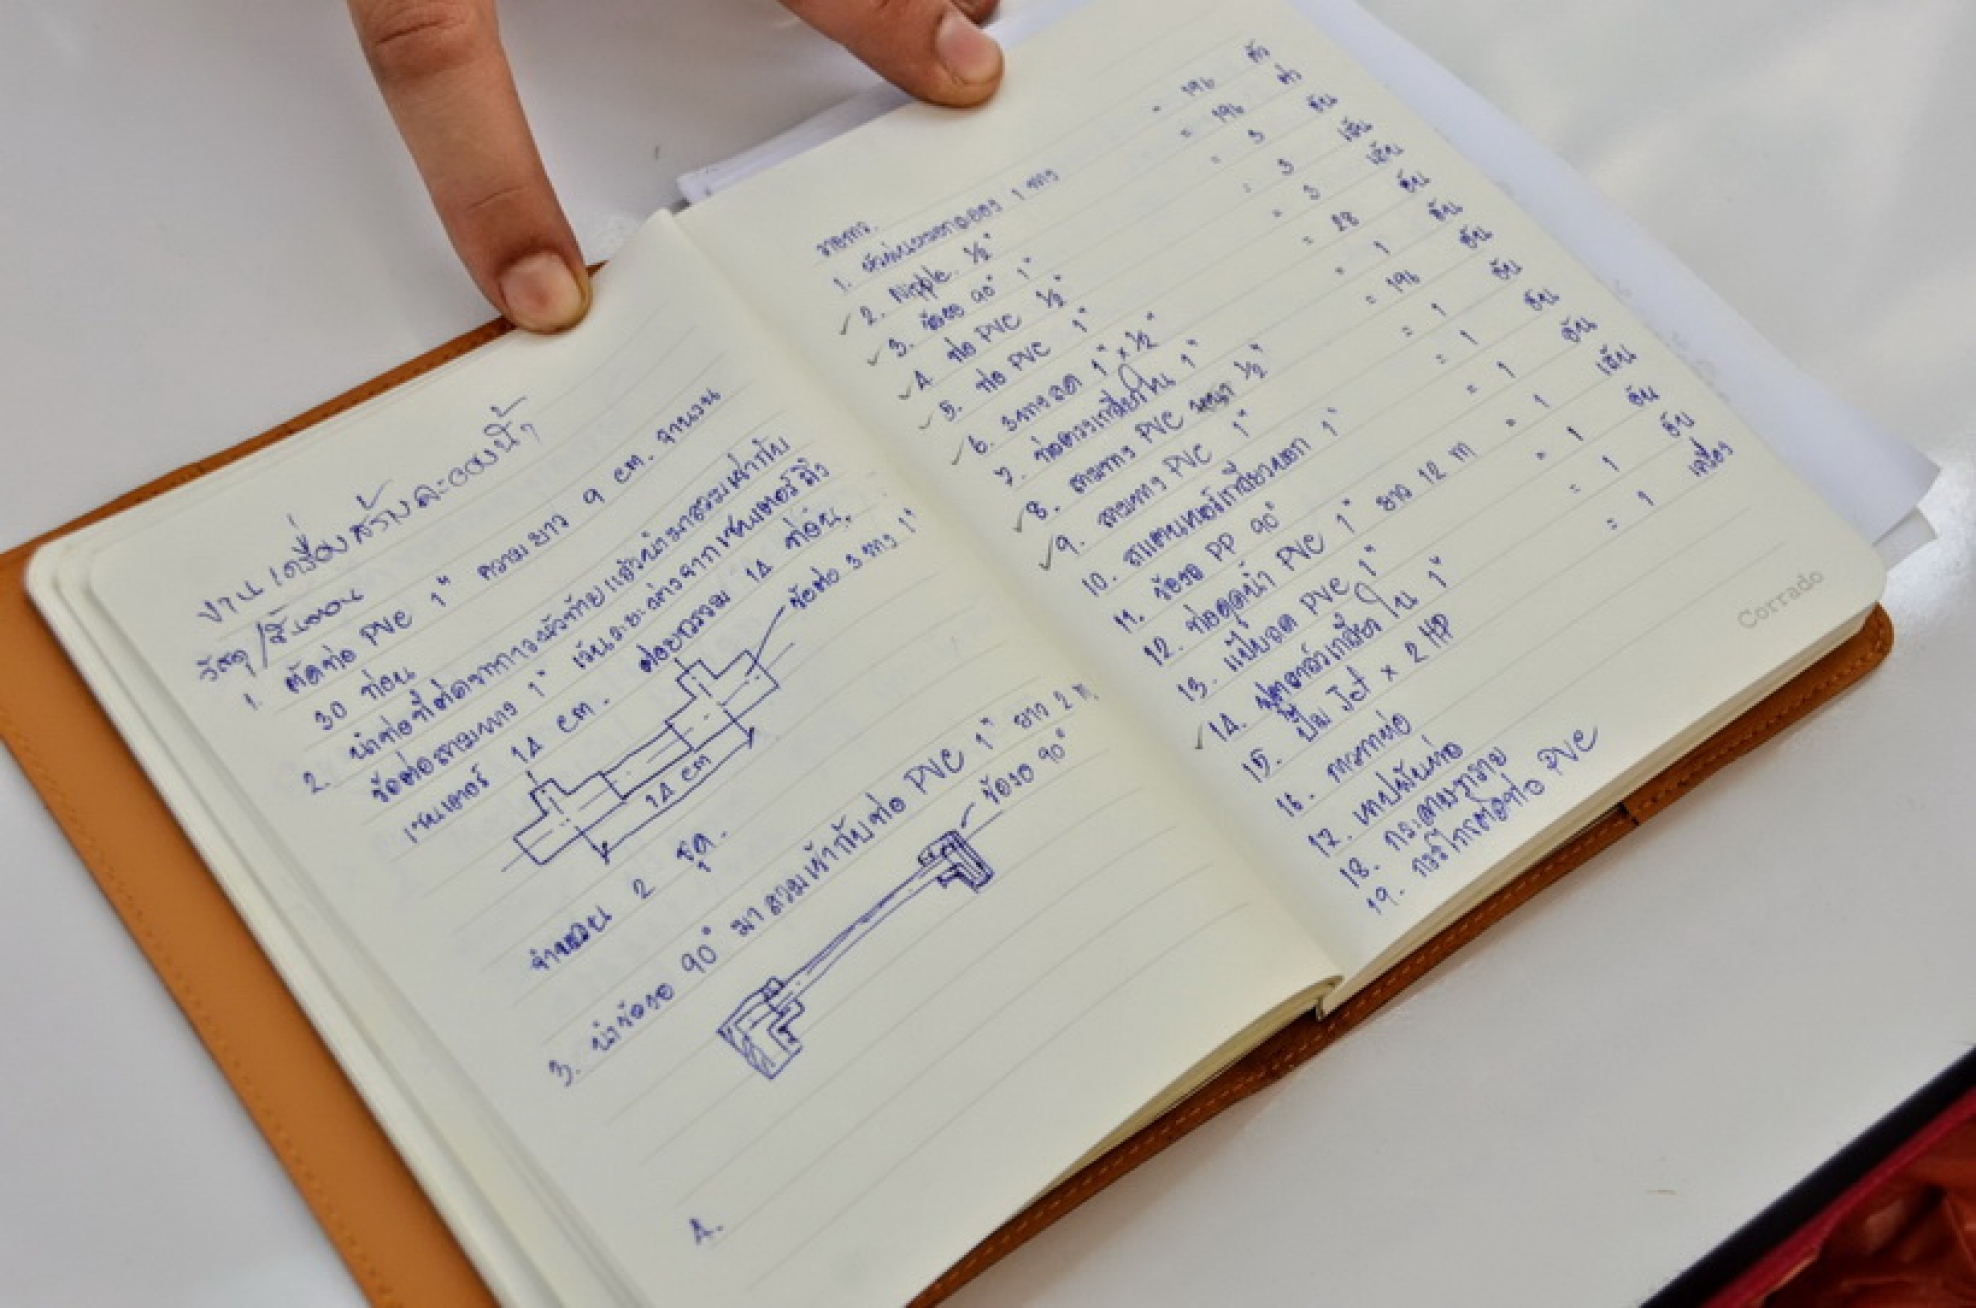 งานเครื่องสร้างละอองน้ำ
วัสดุ/ขั้นตอน
1. ตัดท่อ PVC 1" ความยาว 9 cm. จำนวน
30 ท่อน
2. นำท่อที่ตัดจาก
ข้อต่อสามทาง 1" เว้นระยะห่างจากเซนเตอร์ถึง
เซนเตอร์ 14 cm. ต่อยาวรวม 14 ท่อน.
ข้อต่อ 3 ทาง 1"
14 cm
จำนวน 2 ชุด.
3. นำข้องอ 90° มาสวมเข้ากับท่อ PVC 1" ยาว 2 m
ข้องอ 90°
4.
รายการ.
1. 1 ทาง = 196 ตัว
2. Nipple. 1/2" = 196 ตัว
3. ข้องอ 90° 1" = 3 อัน
4. ท่อ PVC 1/2" = 3 เส้น
5. ท่อ PVC 1" = 3 เส้น
6. 3 ทางลด 1" x 1/2" = 28 อัน
7. เกลียวใน 1" = 1 อัน
8. สามทาง PVC 1/2" = 196 อัน
9. สามทาง PVC 1" = 1 อัน
10. เกลียวนอก 1" = 1 อัน
11. ข้องอ PP 90° = 1 อัน
12. ท่อดูดน้ำ PVC 1" ยาว 12 m = 1 เส้น
13. PVC 1" = 1 อัน
14. เกลียวใน 1" = 1 อัน
15. ปั๊ม Jet x 2 HP = 1 เครื่อง
16. กาวทาท่อ
17. เทปพันท่อ
18. กระดาษทราย
19. กรรไกรตัดท่อ PVC
Corrado